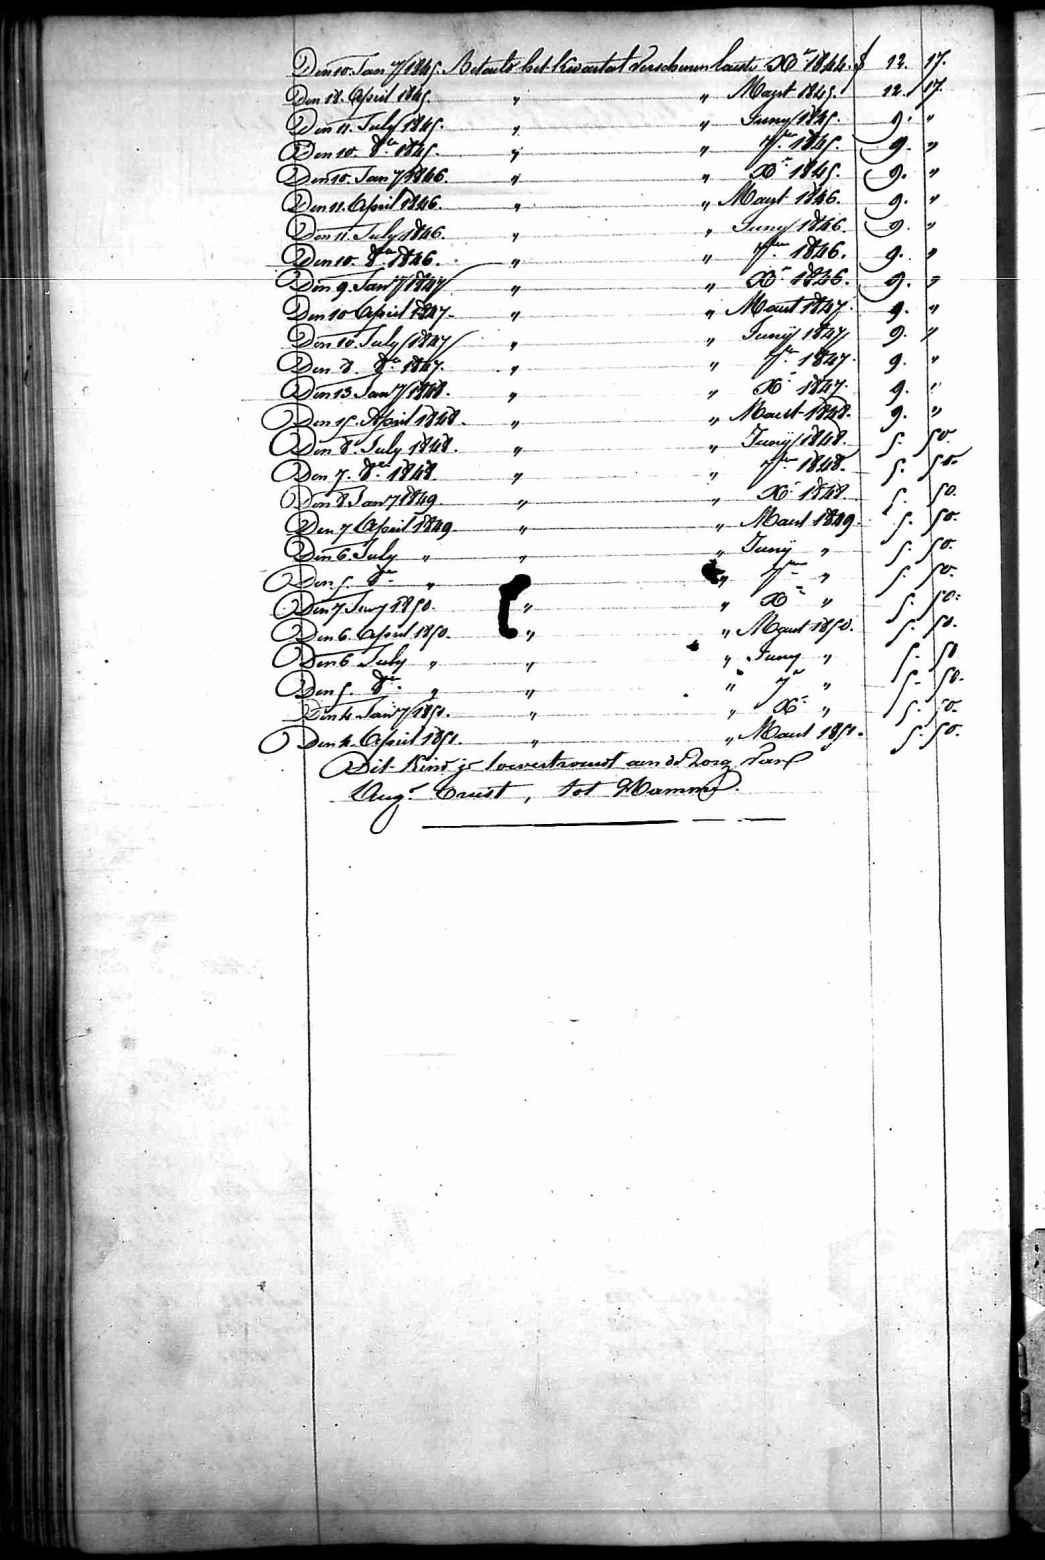 Den 10. Jany 1845. Betaald het kwartaal verschenen laatste Xbr 1844. f 12. 17.
Den 18. April 1845. " " Maart 1845. 12. 17.
Den 11. July 1845. " " Juny 1845. 9. "
Den 10. 8br 1845. " " 7br 1845. 9. "
Den 10. Jany 1846. " " Xbr 1845. 9. "
Den 11. April 1846. " " Maart 1846. 9. "
Den 11. July 1846. " " Juny 1846. 9. "
Den 10. 8br 1846. " " 7br 1846. 9. "
Den 9. Jany 1847 " " Xbr 1846. 9. "
Den 10 April 1847. " " Maart 1847. 9. "
Den 10. July 1847 " " Junij 1847 9. "
Den 8. 8br 1847. " " 7br 1847. 9. "
Den 13. Jany 1848. " " Xbr 1847. 9. "
Den 15. April 1848. " " Maart 1848. 9. "
Den 8. July 1848. " " Junij 1848. 5. 50.
Den 7. 8br 1848. " " 7br 1848. 5. 50.
Den 8 Jany 1849 " " Xbr 1848 5. 50.
Den 7 April 1849 " " Maart 1849. 5. 50.
Den 6. July " " " Junij " 5. 50.
Den 5. 8br " " 7br " 5. 50.
Den 7 Jany 1850. " " Xbr " 5. 50.
Den 6. April 1850. " " Maart 1850. 5. 50.
Den 6 July " " " Juny " 5. 50
Den 5. 8br " " " 7br " 5. 50.
Den 4. Jany 1851. " " Xbr " 5. 50.
Den 4. April 1851. " " Maart 1851. 5. 50.
Dit Kind is toevertrouwd aan de Zorg van
Augt. , tot Hamme.